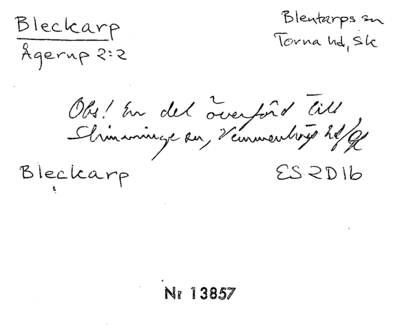 Bleckarp Blentarps sn
Ågerup 2:2 Torna hd, Sk
Obs! En del överförd till
Skurups sn, Vemmenhögs hd
Bleckarp ES 2D1b
Nr 13857